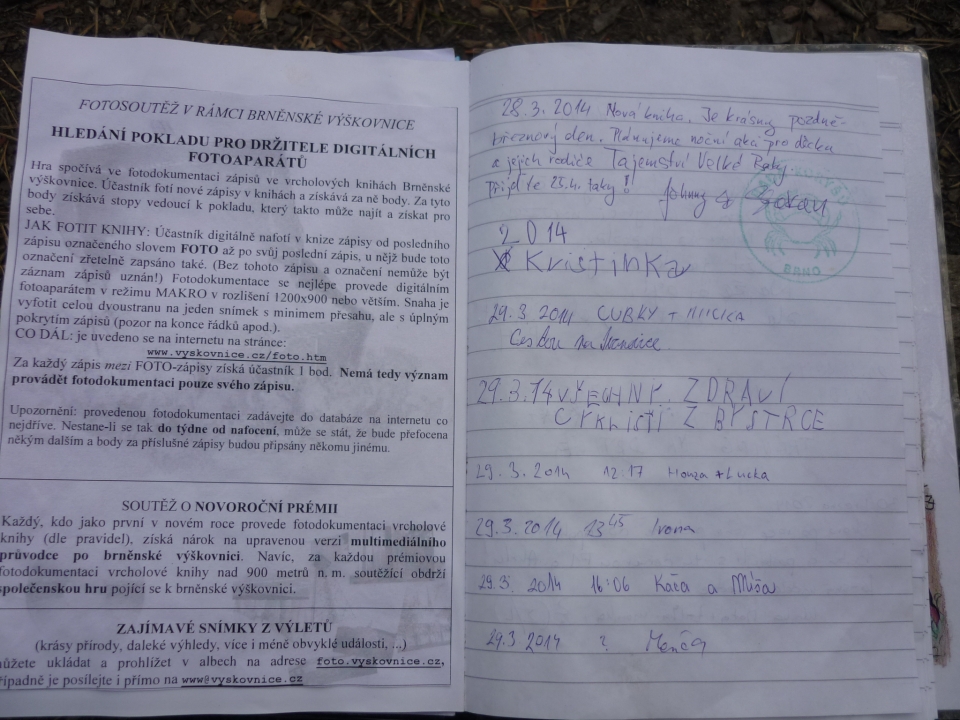 FOTOSOUTĚŽ V RÁMCI BRNĚNSKÉ VÝŠKOVNICE
HLEDÁNÍ POKLADU PRO DRŽITELE DIGITÁLNÍCH
FOTOAPARÁTŮ
Hra spočívá ve fotodokumentaci zápisů ve vrcholových knihách Brněnské
výškovnice. Účastník fotí nové zápisy v knihách a získává za ně body. Za tyto
body získává stopy vedoucí k pokladu, který takto může najít a získat pro
sebe.
JAK FOTIT KNIHU: Účastník digitálně nafotí v knize zápisy od posledního
zápisu označeného slovem FOTO až po svůj poslední zápis, u nějž bude toto
označení zřetelně zapsáno také. (Bez tohoto zápisu a označení nemůže být
záznam zápisů uznán!) Fotodokumentace se nejlépe provede digitálním
fotoaparátem v režimu MAKRO v rozlišení 1200x900 nebo větším. Snaha je
vyfotit celou dvoustranu na jeden snímek s minimem přesahu, ale s úplným
pokrytím zápisů (pozor na konce řádků apod.).
CO DÁL: je uvedeno se na internetu na stránce:
www.vyskovnice.cz/foto.htm
Za každý zápis mezi FOTO-zápisy získá účastník 1 bod. Nemá tedy význam
provádět fotodokumentaci pouze svého zápisu.
Upozornění: provedenou fotodokumentaci zadávejte do databáze na internetu co
nejdříve. Nestane-li se tak do týdne od nafocení, může se stát, že bude přefocena
někým dalším a body za příslušné zápisy budou připsány někomu jinému.
SOUTĚŽ O NOVOROČNÍ PRÉMII
Každý, kdo jako první v novém roce provede fotodokumentaci vrcholové
knihy (dle pravidel), získá nárok na upravenou verzi multimediálního
průvodce po brněnské výškovnici. Navíc, za každou prémiovou
fotodokumentaci vrcholové knihy nad 900 metrů n. m. soutěžící obdrží
společenskou hru pojící se k brněnské výškovnici.
ZAJÍMAVÉ SNÍMKY Z VÝLETŮ
(krásy přírody, daleké výhledy, více i méně obvyklé události, ...)
můžete ukládat a prohlížet v albech na adrese foto.vyskovnice.cz,
případně je posílejte i přímo na www@vyskovnice.cz
28.3. 2014 Nová kniha. Je krásny pozdně-
březnový den. Plánujeme noční akci pro děcka
a jejich rodiče Tajemství Velké Baby
přijďte 25.4. taky!
BRNO
2014
Kristinka
29.3 2014 CUBKY +
Cestou na
29.3.14 VŠECHNY ZDRAVÍ
CYKLISTÍ Z BYSTRCE
29.3.2014 12.17 Honza + Lucka
29.3.2014 13 45 Ivona
29.3. 2014 16:06 Káča a Míša
29.3 2014 ?